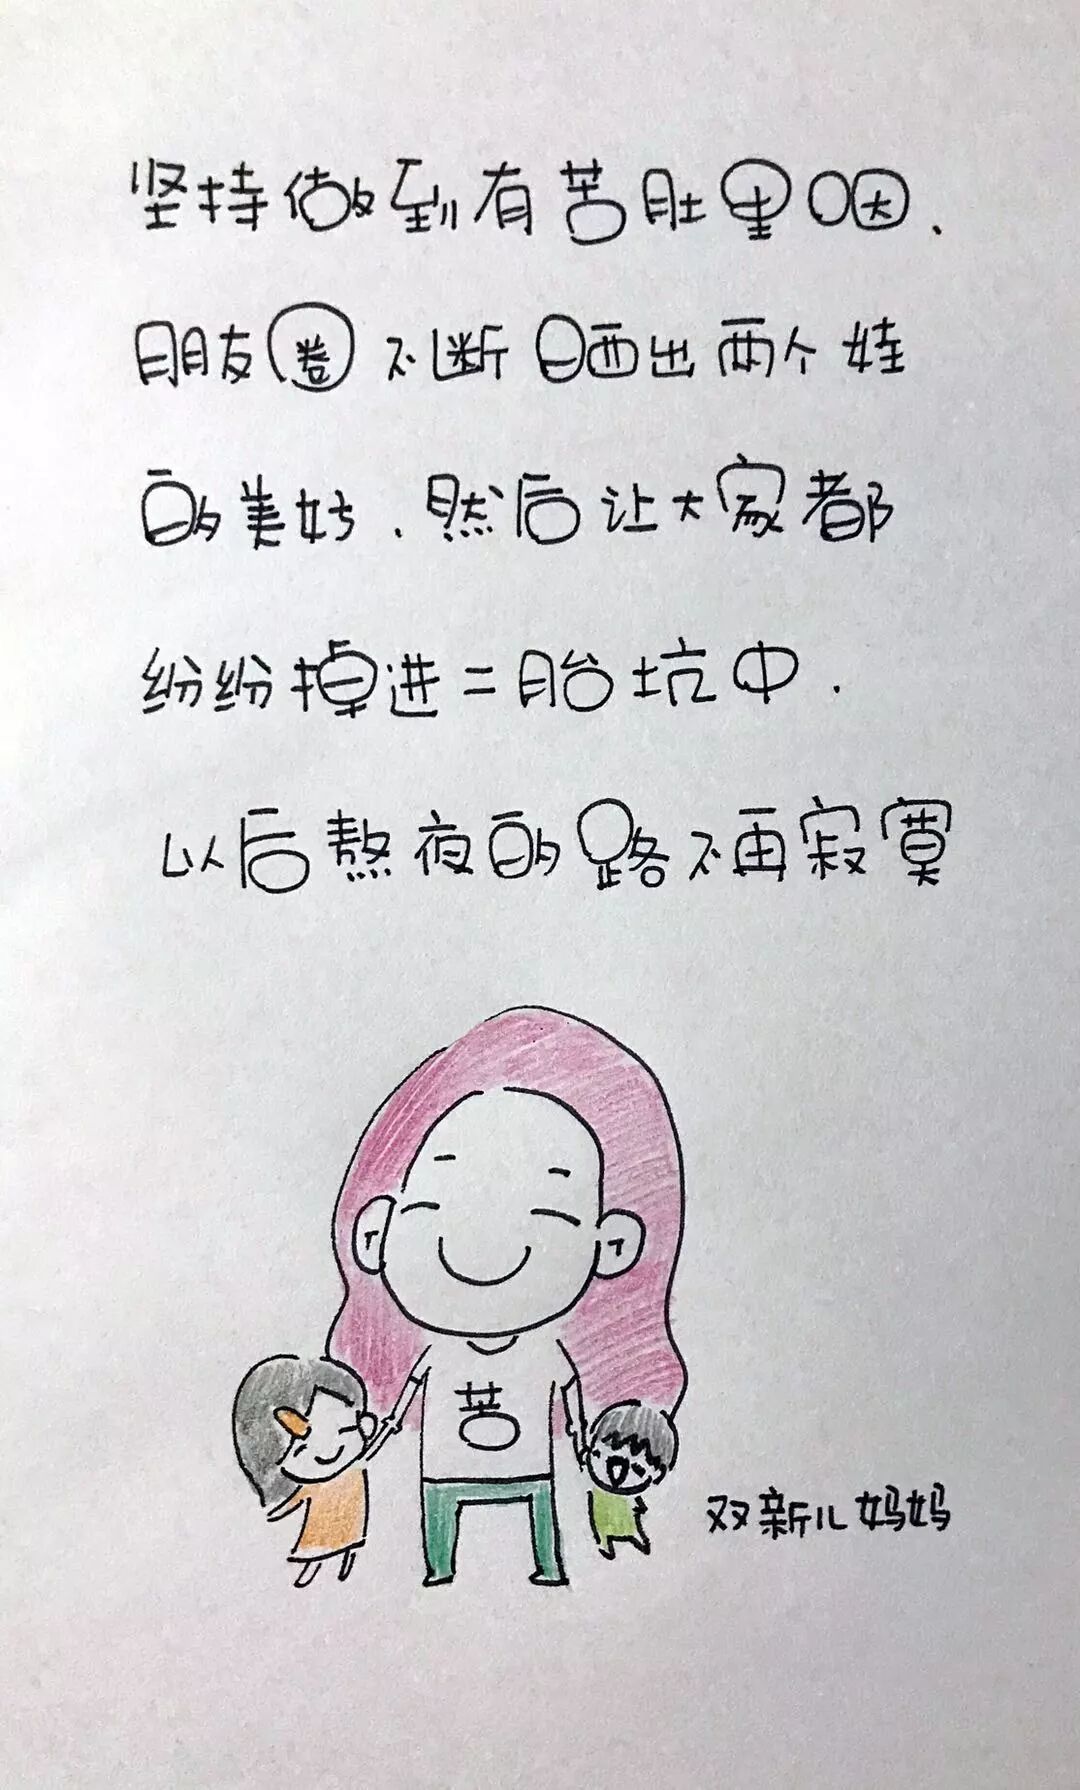 坚持做到有苦肚里咽.
朋友圈不断晒出两个娃
的美好.然后让大家都
纷纷掉进二胎坑中.
以后熬夜的路不再寂寞
苦
双新儿妈妈